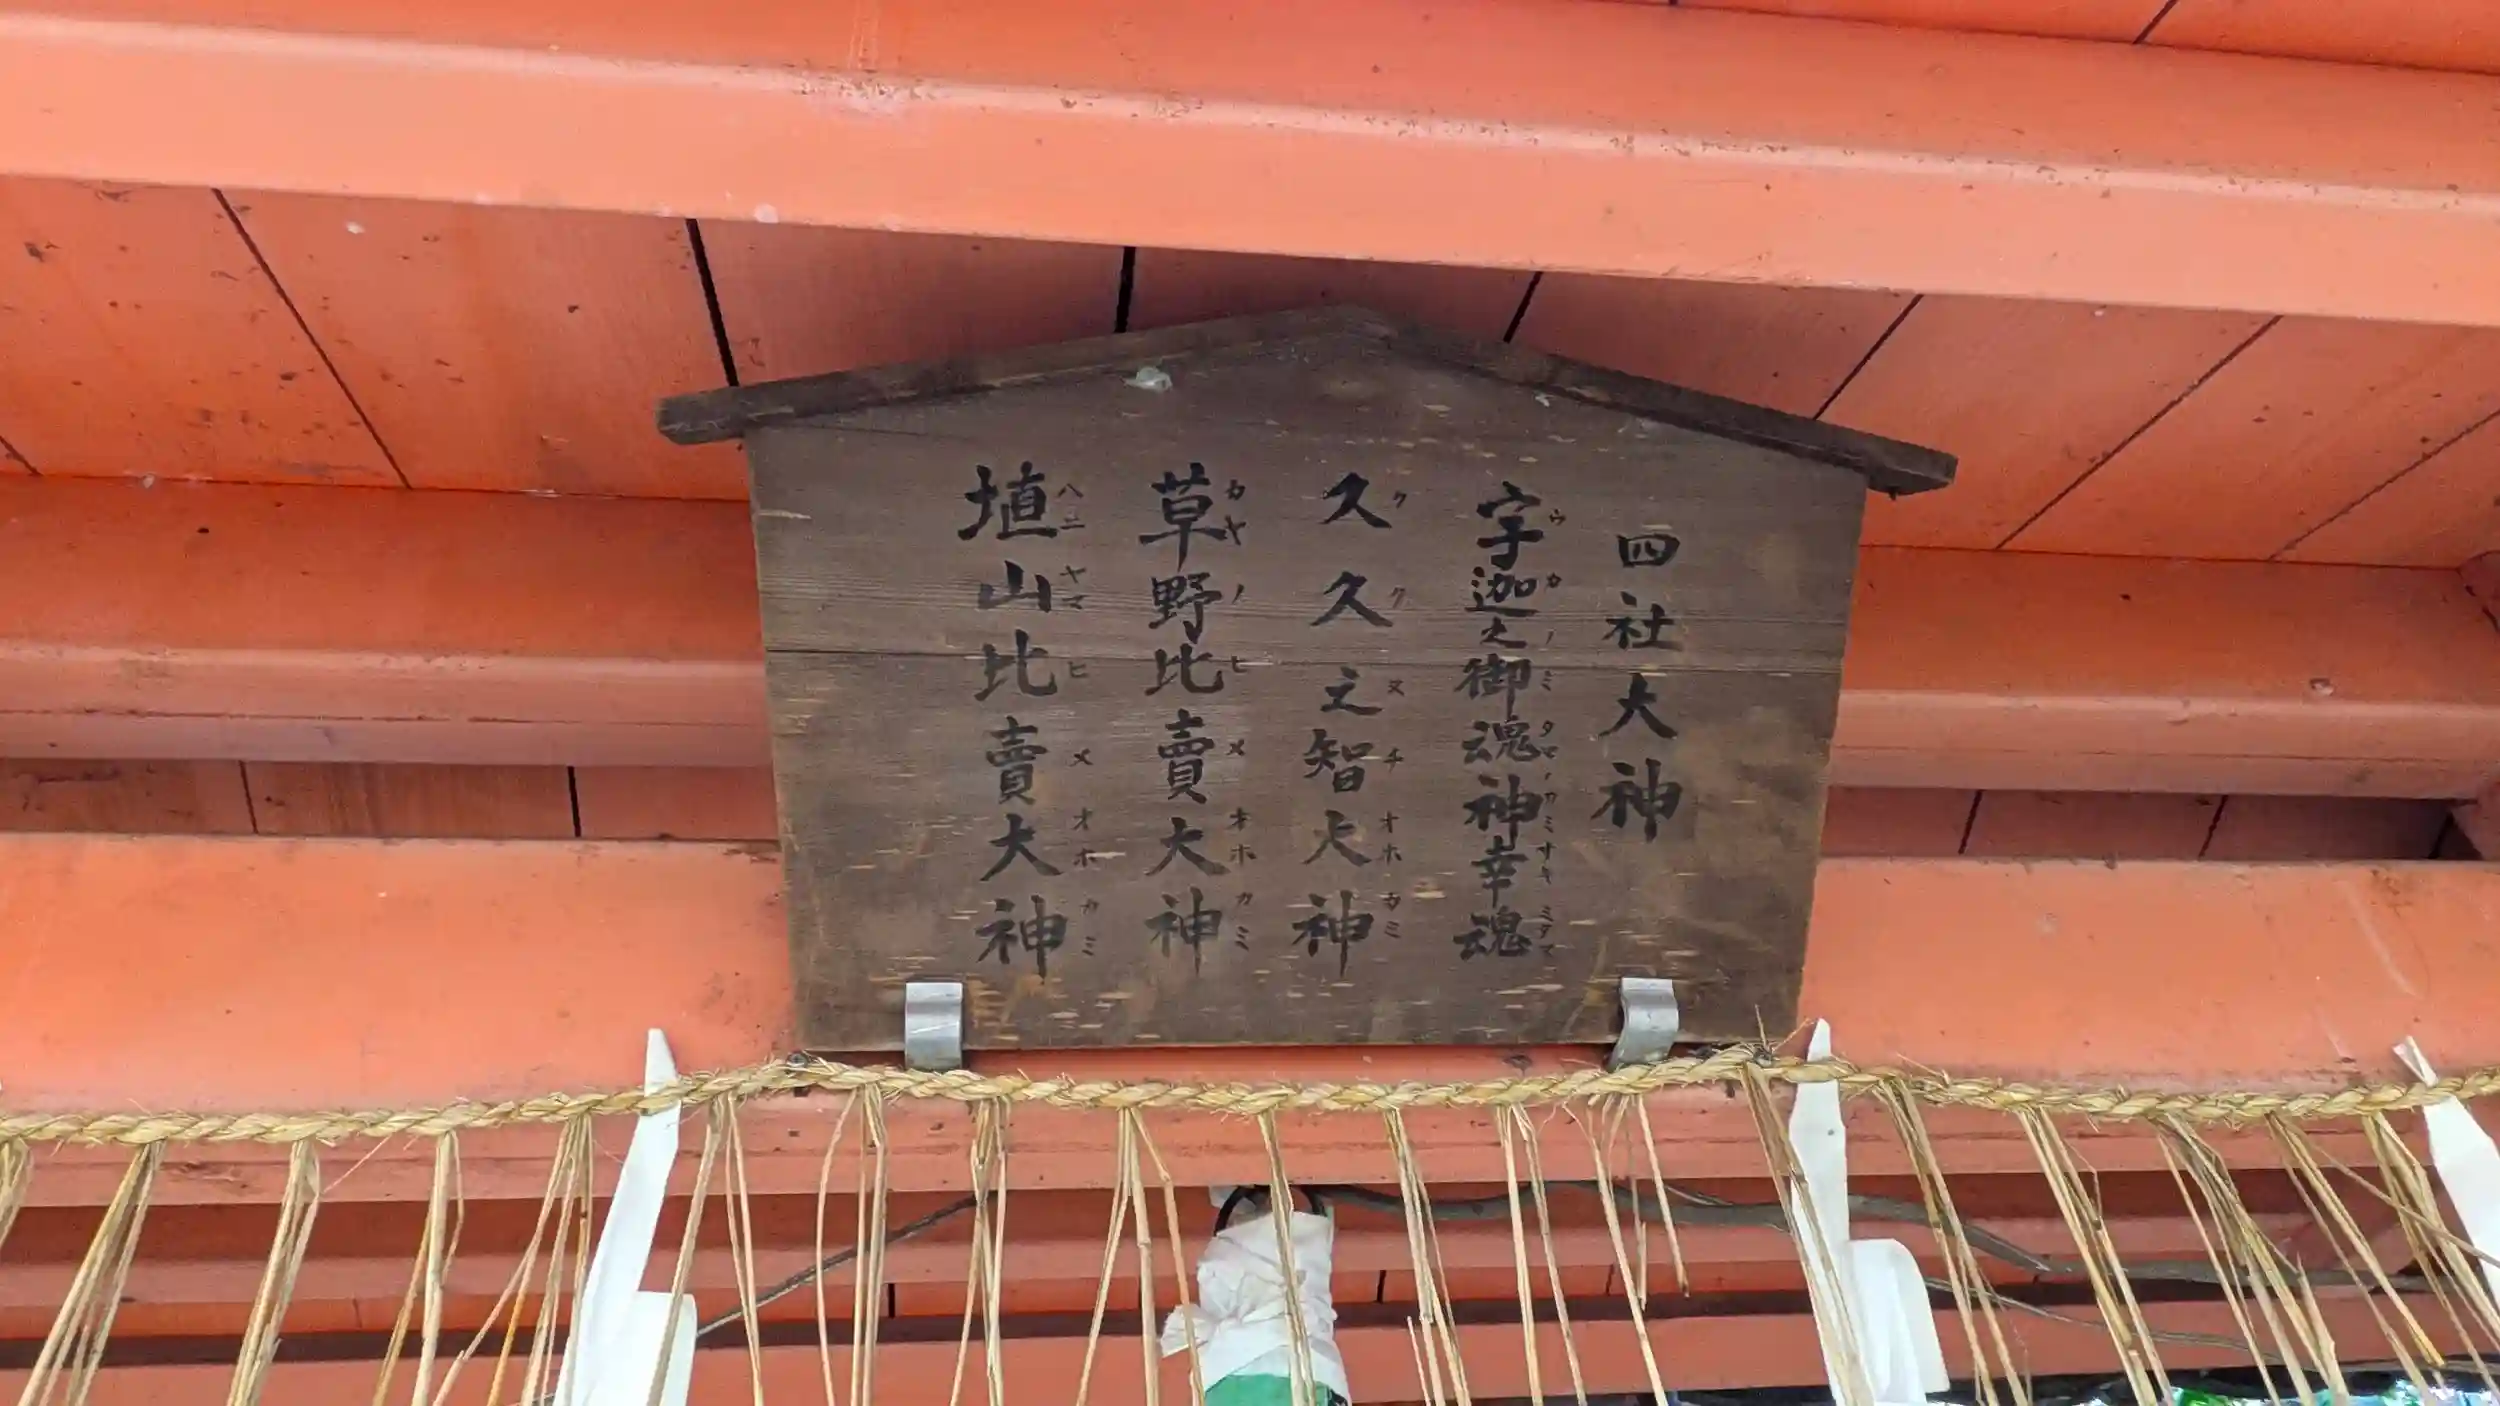 四社大神
宇迦之御魂神幸魂
ウカノミタマノカミサキミタマ
久久之智大神
ククヌチオホカミ
草野比賣大神
カヤノヒメオホカミ
埴山比賣大神
ハニヤマヒメオホカミ